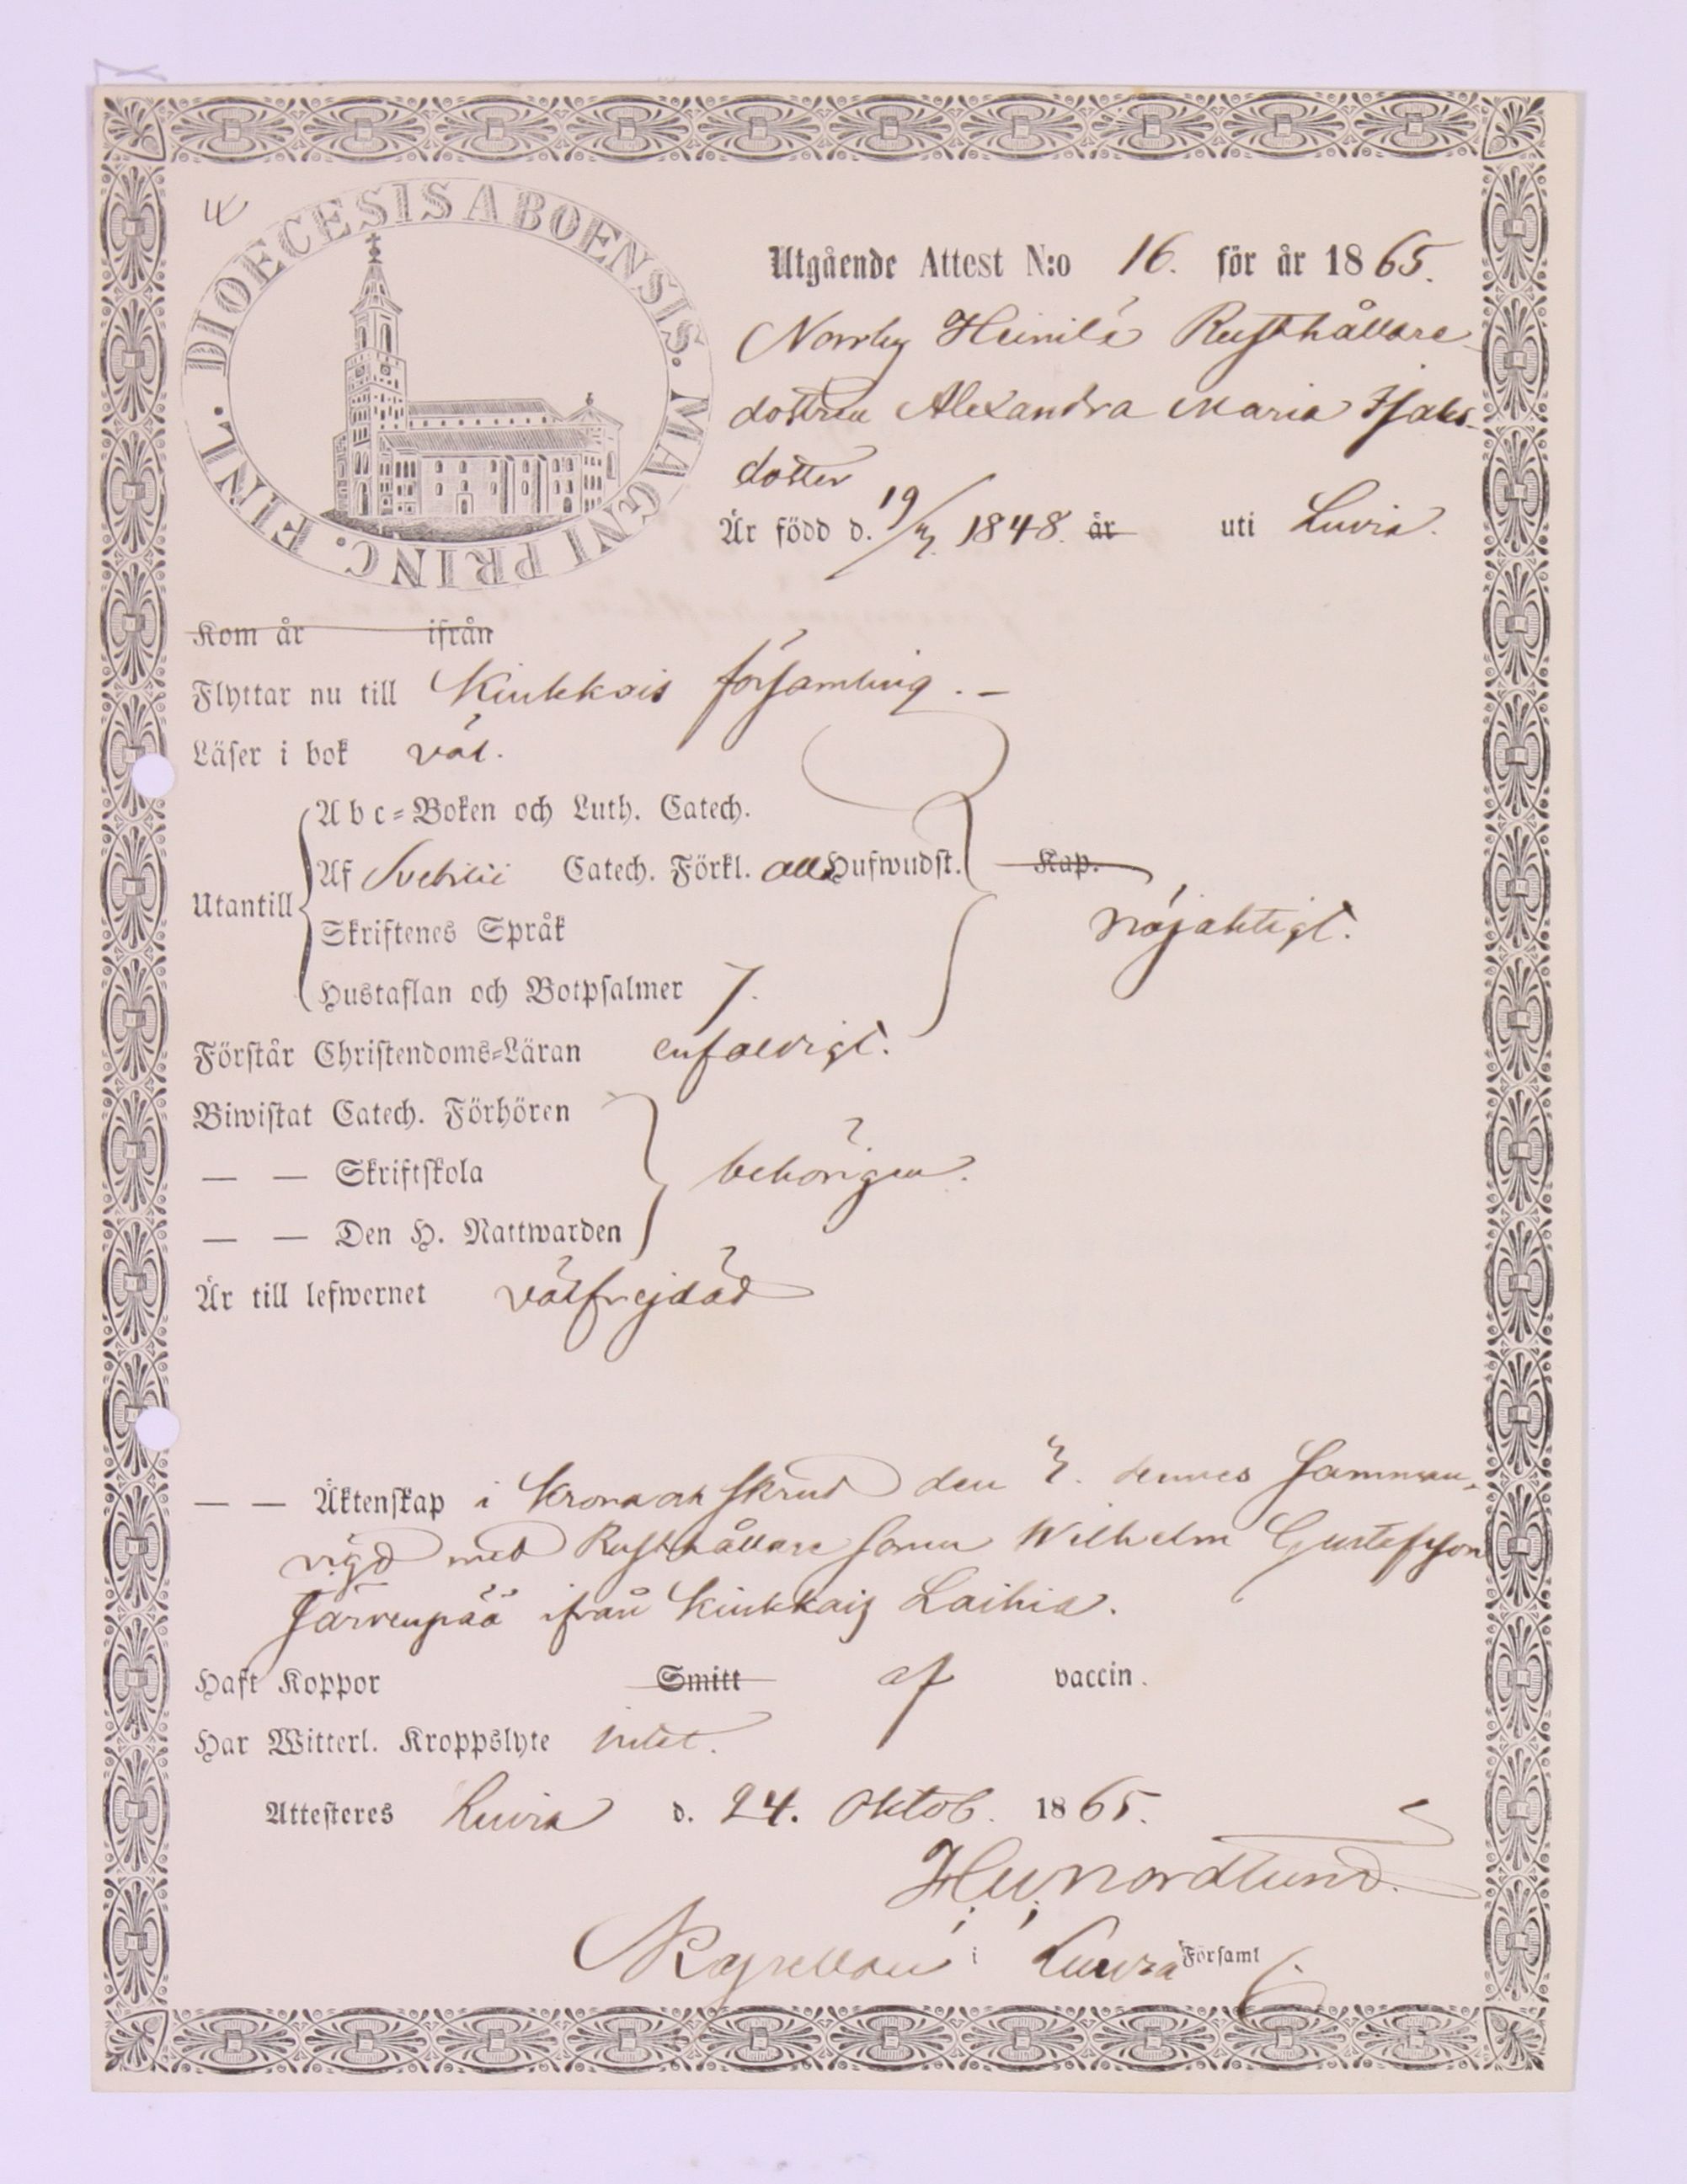 DIOECESIS ABOENSIS. MAGNI PRINC. FINL.
Utgående Attest N:o 16. för år 1865.
Norrby Heinilä Rusthållare
dottren Alexandra Maria Isaks-
dotter
Är född d. 19/3 1848. år uti Luvia.
Kom år ifrån
Flyttar nu till Kiukkois församling.-
Läser i bok väl.
Abc-Boken och Luth. Catech.
Utantill Af Svebilii Catech. Förkl. all Hufwudst. Kap.
Skriftenes Språk nöjaktigt.
Hustaflan och Botpsalmer 7.
Förstår Christendoms-Läran enfaldigt.
Biwistat Catech. Förhören
— — Skriftskola behörigen.
— — Den H. Nattwarden
Är till lefwernet välfrejdad
— — Äktenskap i krona och skrud den 3. dennes samman-
vigd med Rusthållare sonen Wilhelm Gustafsson
Järvenpää ifrån Kiukkais Laihia.
Haft Koppor Smitt af vaccin.
Har Witterl. Kroppslyte intet.
Attesteres Luvia d. 24. Oktob. 1865.
Nordlund.
Kapellan i Luvia Församl